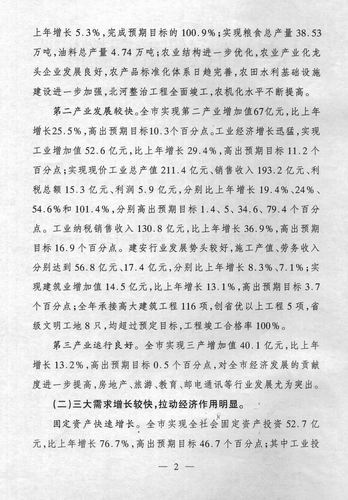 上年增长5.3%,完成预期目标的100.9%;实现粮食总产量38.53
万吨,油料总产量4.74万吨;农业结构进一步优化,农业产业化龙
头企业发展良好,农产品标准化体系日趋完善,农田水利基础设施
建设进一步加强,北河整治工程全面竣工,农机化水平不断提高。
第二产业发展较快。全市实现第二产业增加值67亿元,比上年
增长25.5%,高出预期目标10.3个百分点。工业经济增长迅猛,实现
工业增加值52.6亿元,比上年增长29.4%,高出预期目标11.2个
百分点;实现现价工业总产值211.4亿元、销售收入193.2亿元、利
税总额15.3亿元、利润5.9亿元,分别比上年增长19.4%、24%、
54.6%和101.4%,分别高出预期目标1.4、5、34.6、79.4个百分
点。工业纳税销售收入130.8亿元,比上年增长36.9%,高出预期
目标16.9个百分点。建安行业发展势头较好,施工产值、劳务收入
分别达到56.8亿元、17.4亿元,分别比上年增长8.3%、7.1%;实
现建筑业增加值14.5亿元,比上年增长13.1%,高出预期目标3.7
个百分点;全年承接高大建筑工程116项,创省优以上工程5项,省
级文明工地8只,均超过预定目标,工程竣工合格率100%。
第三产业运行良好。全市实现三产增加值40.1亿元,比上年
增长13.2%,高出预期目标0.5个百分点,对全市经济发展的贡献
度进一步提高,房地产、旅游、教育、邮电通讯等行业发展尤为突出。
(二)三大需求增长较快,拉动经济作用明显。
固定资产快速增长。全市实现全社会固定资产投资52.7亿
元,比上年增长76.7%,高出预期目标46.7个百分点;其中工业投
— 2 —